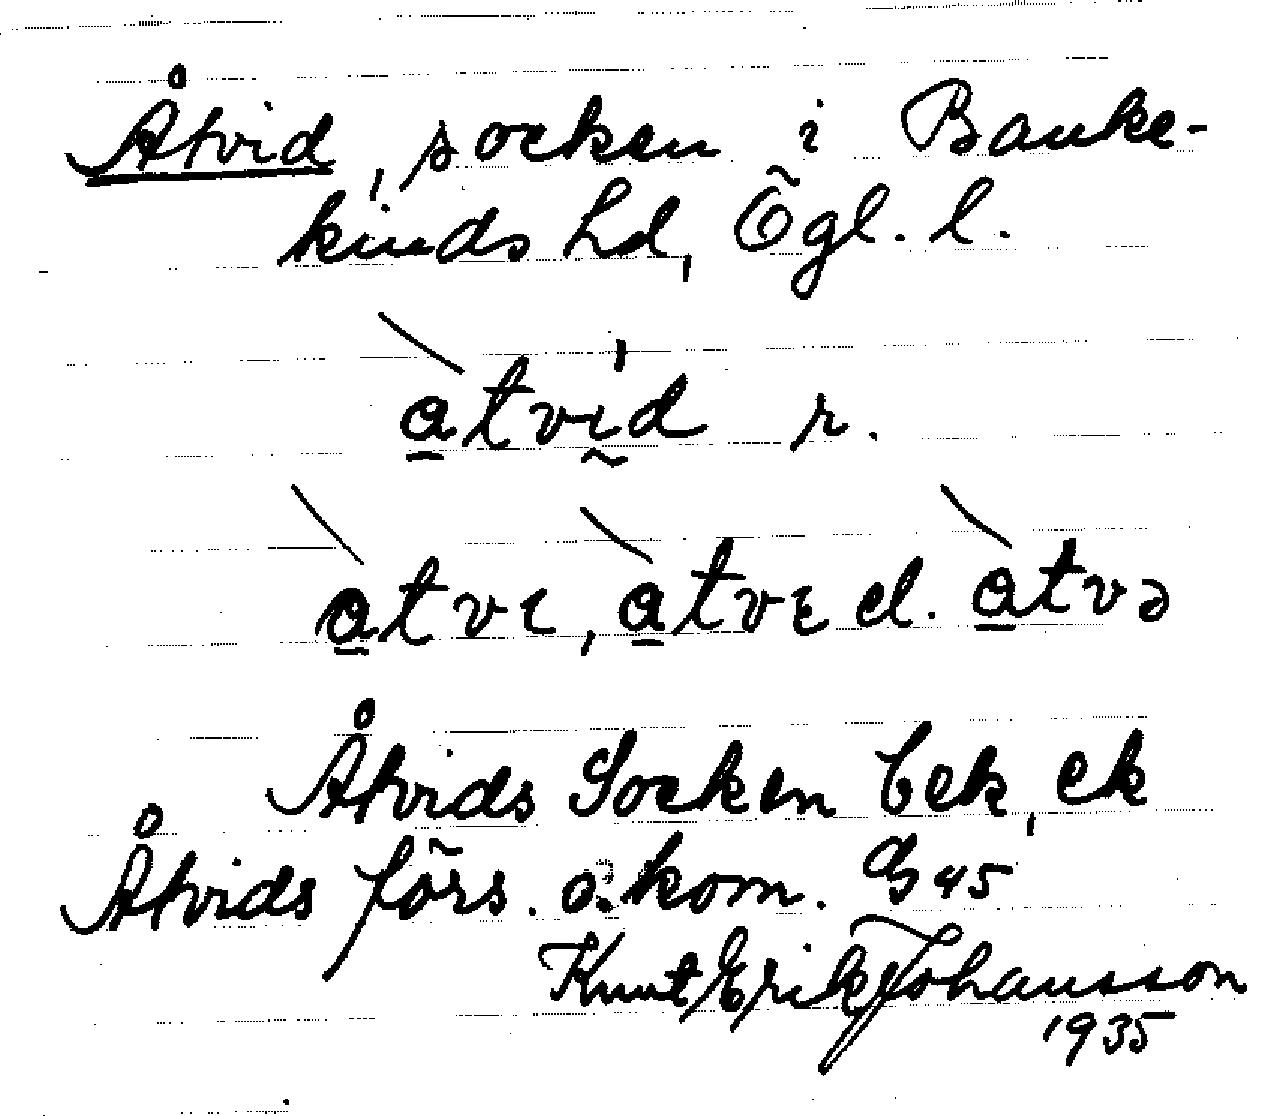 Åtvid, socken i Banke-
kinds hd, Ögl. l.
a̲tvı̰́d r.
a̲tvɩ, a̲tvᴇ el. a̲tvə
Åtvids Socken bek, ek
Åtvids förs. o. kom. G 45
Knut Erik Johansson
1935